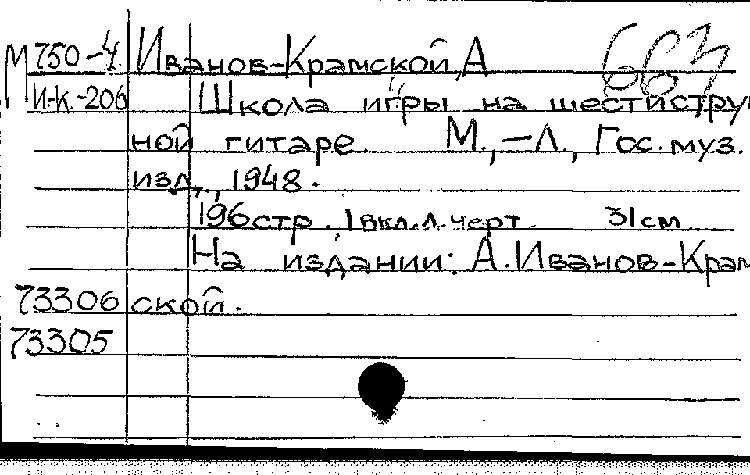 М 750-4 Иванов-Крамской, А 663
И-К.-206 Школа игры на шестистру
ной гитаре. М.,-Л., Гос. муз.
изд., 1948.
196 стр. 1 вкл. л. черт 31 см
На издании: А. Иванов-Крам
73306 ской.
73305